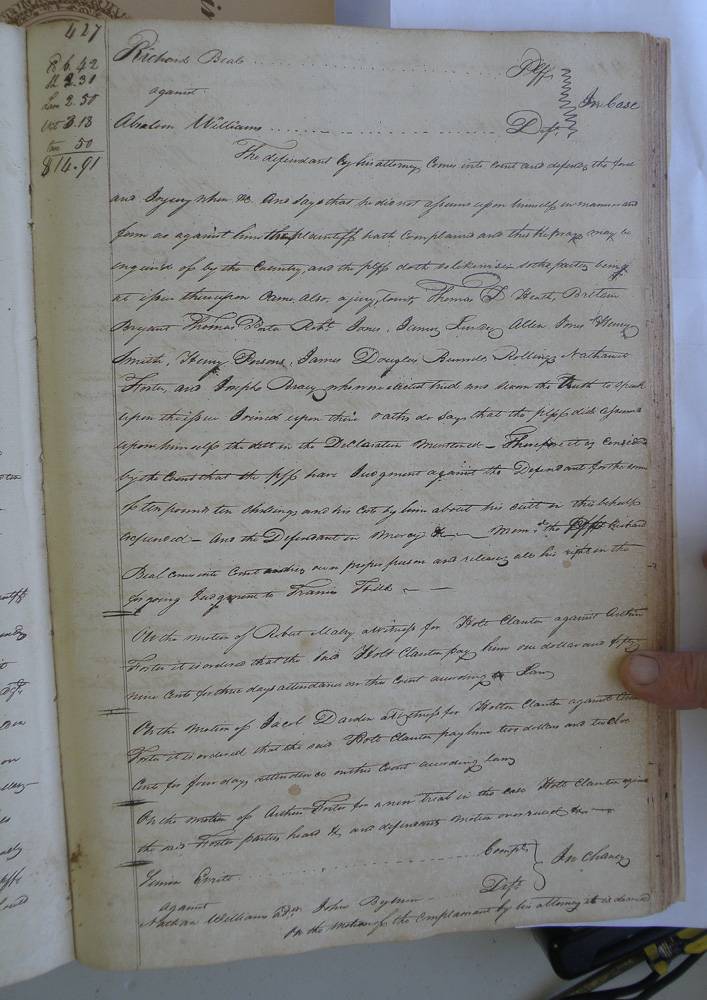 427
6.42
2.31
2.50
3.18
50
$14.91
Richard Beal Plff
against In Case
Absalom Williams Deft
The defendant by his attorney Comes into Court and defends the force
and Injury when &c. And says that he did not assume upon himself in manner and
form as against him the plaintiff hath Complained and this he prays may be
enquired of by the Country, and the plff doth so likewise so the parties being
at issue thereupon Came Also, a jury, towit Thomas D Heath, Britain
Bryant Thomas Porter Robt. Jones, James Lindsey Allen Jones Henry
Smith, Henry Persons, James Douglas Burrel Rollings Nathaniel
Foster, and Joseph Bracy who were elected tried and sworn the Truth to speak
upon the issue Joined upon their oaths do says that the plff did assume
upon himself the debt in the Declaration Mentioned — Therefore it is Considered
by the Court that the plff have Judgment against the Defendant for the sum
of ten pounds ten Shillings and his Costs by him about his suit in this behalf
expended — And the Defendant in Mercy &c — Memd. the Richard
Beal came into Court own proper person and releases all his right in the
forgoing Judgment to Francis
On the motion of Robert Malry a witness for Holt Clanton against Arthur
Foster it is ordered that the said Holt Clanton pay him one dollar and fifty
nine Cents for three days attendance on this Court according to Law
On the motion of Jacob Darden a Witness for Holt Clanton against
Foster it is ordered that the said Holt Clanton pay him two dollars and twelve
Cents for four days attendance on this Court according Law
On the motion of Arthur Foster for a new trial in the case Holt Clanton against
the said Foster parties heard &c and defendants motion overruled &c
Compt
against In Chancy
Nathan Williams adr. John Deft
On the motion of the Complainant by his attorney it is decreed